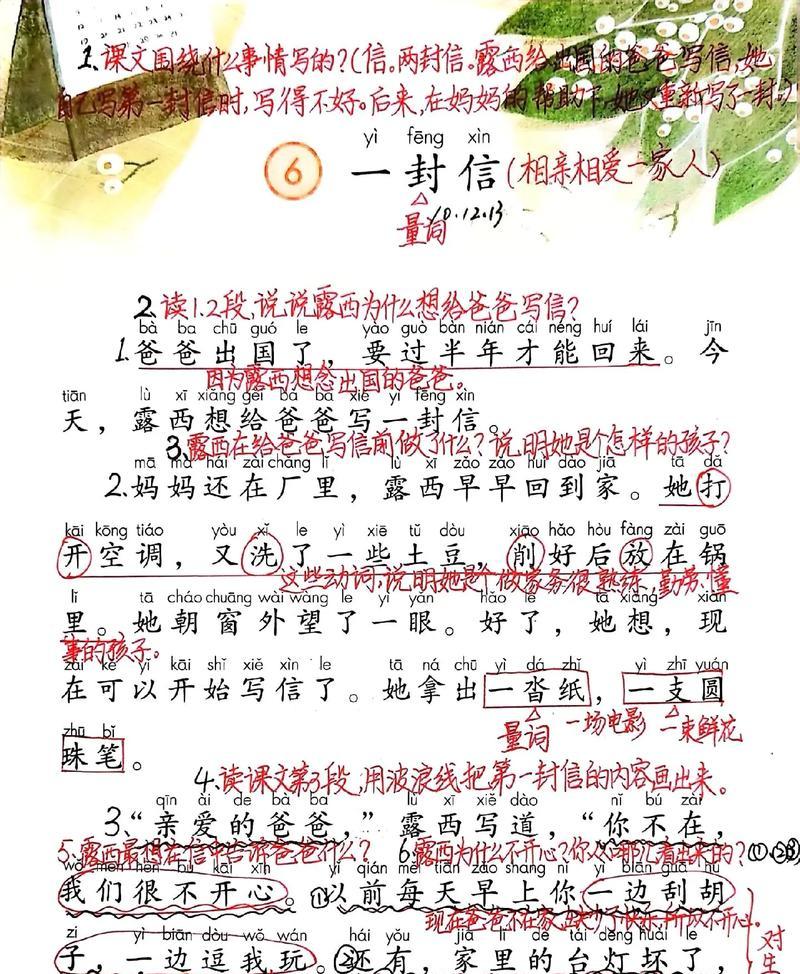 1.课文围绕什么事情写的?(信。两封信。露西给出国的爸爸写信,她
自己写第一封信时,写得不好。后来,在妈妈的帮助下,她又重新写了一封。)
yì fēng xìn
6 一封信(相亲相爱一家人)
量词 10.12.13
2.读1.2段,说说露西为什么想给爸爸写信?
bà ba chū guó le yào guò bàn nián cái néng huí lái jīn
1.爸爸出国了,要过半年才能回来。今
因为露西想念出国的爸爸。
tiān lù xī xiǎng gěi bà ba xiě yì fēng xìn
天,露西想给爸爸写一封信。
3.露西在给爸爸写信前做了什么?说明她是个怎样的孩子?
mā ma hái zài chǎng lǐ lù xī zǎo zǎo huí dào jiā tā dǎ
2.妈妈还在厂里,露西早早回到家。她打
kāi kōng tiáo yòu xǐ le yì xiē tǔ dòu xiāo hǎo hòu fàng zài guō
开空调,又洗了一些土豆,削好后放在锅
这些动词,说明她是个做家务很熟练,勤劳、懂
lǐ tā cháo chuāng wài wàng le yì yǎn hǎo le tā xiǎng xiàn
里。她朝窗外望了一眼。好了,她想,现
事的孩子。
zài kě yǐ kāi shǐ xiě xìn le tā ná chū yì dá zhǐ yì zhī yuán
在可以开始写信了。她拿出一沓纸,一支圆
量词 一场电影 一束鲜花
zhū bǐ
珠笔。
4.读课文第3段,用波浪线把第一封信的内容画出来。
qīn ài de bà ba lù xī xiě dào nǐ bú zài
3.“亲爱的爸爸,”露西写道,“你不在,
5.露西最想在信中告诉爸爸什么? 6.露西为什么不开心?你从哪儿看出来的?
wǒ men hěn bù kāi xīn yǐ qián měi tiān zǎo shang nǐ yì biān guā hú
我们很不开心。①以前每天早上你一边刮胡
现在爸爸不在家,缺少了快乐,所以不开心。
zi yì biān dòu wǒ wán hái yǒu jiā lǐ de tái dēng huài le
子,一边逗我玩。②还有,家里的台灯坏了,
对
生